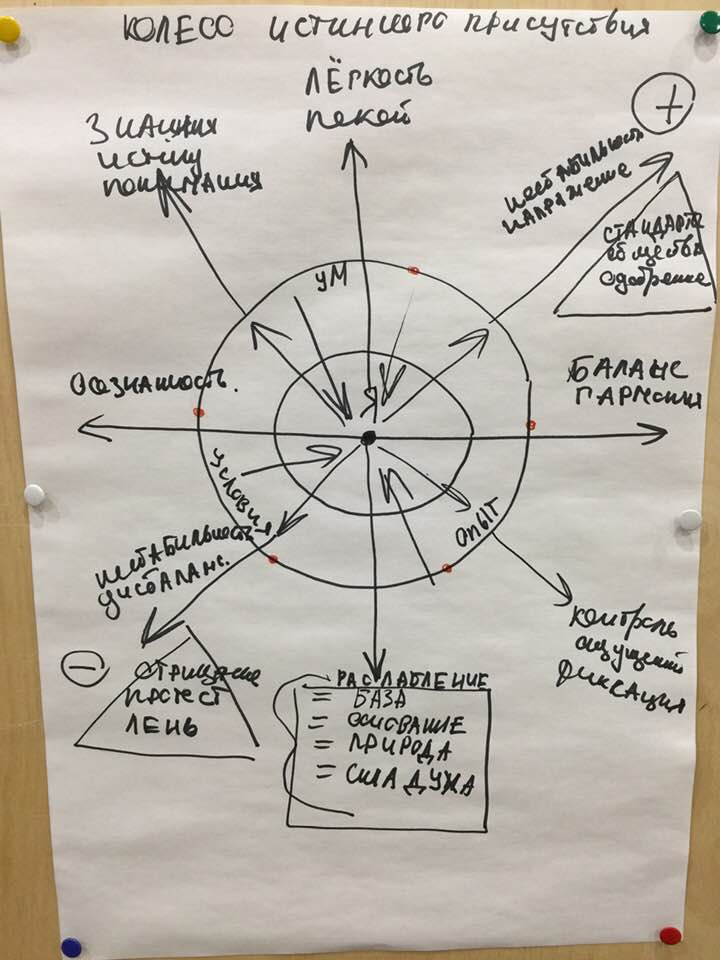 КОЛЕСО ИСТИННОГО ПРИСУТСТВИЯ
ЛЁГКОСТЬ
ПОКОЙ
+
ЗНАНИЯ
ИСТИН
ПОНИМАНИЯ
НЕСТАБИЛЬНОСТЬ
НАПРЯЖЕНИЕ
СТАНДАРТЫ
ОБЩЕСТВА
ОДОБРЕНИЕ
УМ
ОСОЗНАННОСТЬ.
Я
БАЛАНС
ГАРМОНИЯ
УСЛОВИЯ
ОПЫТ
НЕСТАБИЛЬНОСТЬ
ДИСБАЛАНС.
КОНТРОЛЬ
ОЩУЩЕНИЙ
ФИКСАЦИЯ
−
ОТРИЦАНИЕ
ПРОТЕСТ
ЛЕНЬ
РАССЛАБЛЕНИЕ
= БАЗА
= ОСНОВАНИЕ
= ПРИРОДА
= СИЛА ДУХА